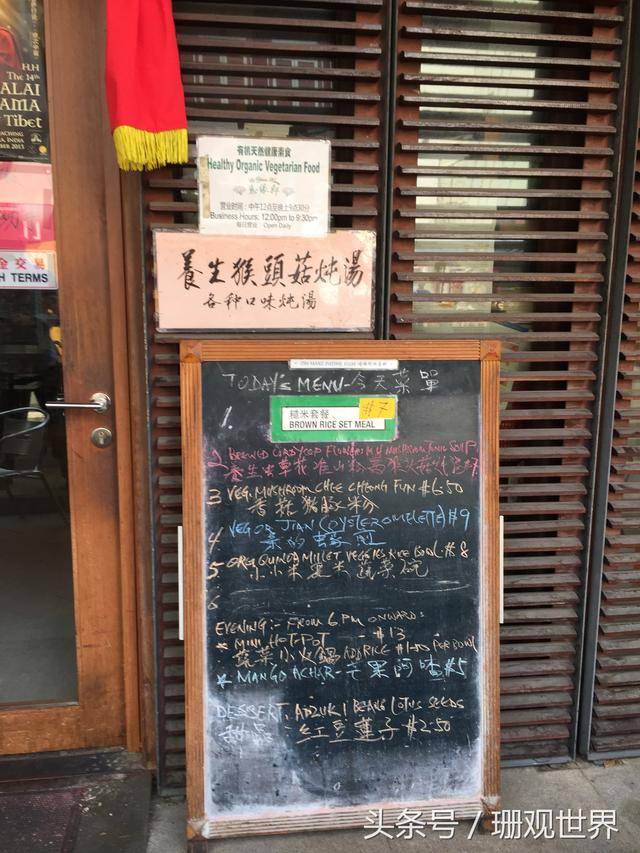 H.H
The 14th
ALAI
AMA
Tibet
INDIA
2013
金交易
H TERMS
有机天然健康素食
Healthy Organic Vegetarian Food
营业时间:中午12点至晚上9点30分
Business Hours: 12:00pm to 9:30pm
每日营业 Open Daily
養生猴頭菇炖湯
各种口味炖湯
TODAY's MENU-今天菜單
1.
糙米套餐、 $7
BROWN RICE SET MEAL
2 MUSHROOM TONIC SOUP
養生虫草花淮山
3 VEG. MUSHROOM CHEE CHEONG FUN $6.50
香菇豬腸粉
VEG OR JIAN (OYSTER OMELETTE) $9
4 素的蠔煎
5. ORG QUINOA MILLET VEGGIES RICE BOWL $8
小小米黑米蔬菜碗
6
EVENING:- FROM 6PM ONWARD:
* MINI HOT-POT - $13
蔬菜小火鍋 ADD RICE $1.00 PER BOWL
* MANGO ACHAR-芒果阿喳 $5
DESSERT, ADZUKI BEANS LOTUS SEEDS
甜品:紅豆蓮子 $2.50
头条号 / 珊观世界